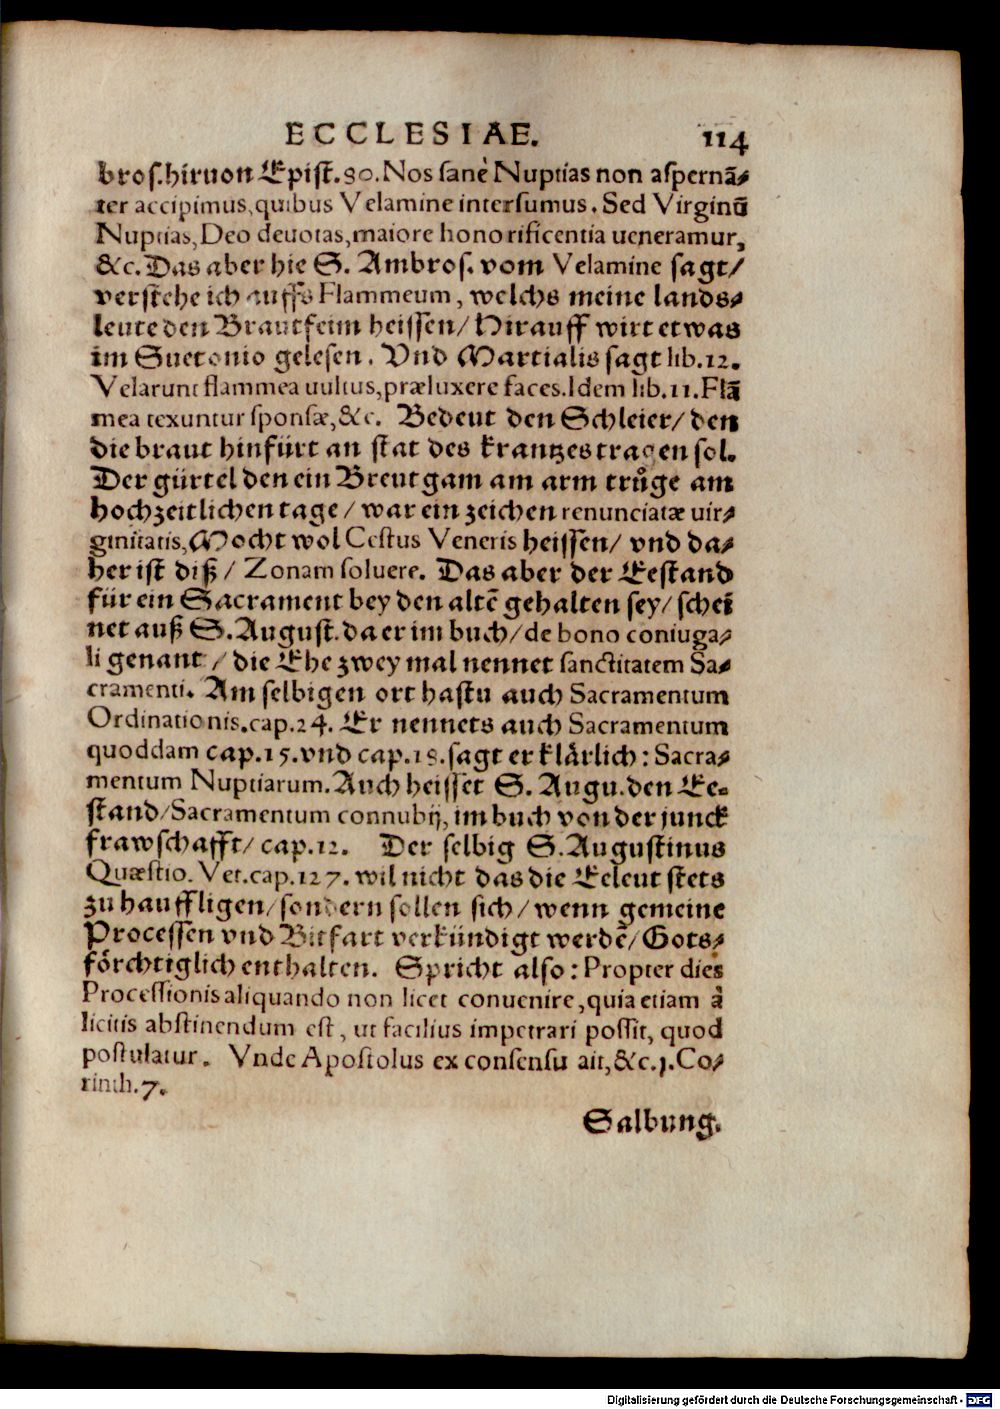 ECCLESIAE. 114
bros. hiruon Epist. 80. Nos sanè Nuptias non aspernã⸗
ter accipimus, quibus Velamine intersumus. Sed Virginũ
Nuptias, Deo deuotas, maiore honorificentia ueneramur,
&c. Das aber hie S. Ambros. vom Velamine sagt/
verstehe ich auffs Flammeum, welchs meine lands⸗
leute den Brautfeim heissen/ Hirauff wirt etwas
im Suetonio gelesen. Vnd Martialis sagt lib. 12.
Velarunt flammea uultus, præluxere faces. Idem lib. 11. Flã
mea texuntur sponsæ, &c. Bedeut den Schleier/ den
die braut hinfürt an stat des krantzes tragen sol.
Der gürtel den ein Breutgam am arm trůge am
hochzeitlichen tage/ war ein zeichen renunciatæ uir⸗
ginitatis, Mocht wol Cestus Veneris heissen/ vnd da⸗
her ist diß/ Zonam soluere. Das aber der Eestand
für ein Sacrament bey den altẽ gehalten sey/ scheĩ
net auß S. August. da er im buch/ de bono coniuga⸗
li genant/ die Ehe zwey mal nennet sanctitatem Sa⸗
cramenti. Am selbigen ort hastu auch Sacramentum
Ordinationis. cap. 24. Er nennets auch Sacramentum
quoddam cap. 15. vnd cap. 18. sagt er klårlich: Sacra⸗
mentum Nuptiarum. Auch heisset S. Augu. den Ee⸗
stand/ Sacramentum connubij, im buch von der junck
frawschafft/ cap. 12. Der selbig S. Augustinus
Quæstio. Vet. cap. 127. wil nicht das die Eeleut stets
zu hauff ligen/ sondern sollen sich/ wenn gemeine
Processen vnd Bitfart verkündigt werdẽ/ Gots⸗
förchtiglich enthalten. Spricht also: Propter dies
Processionis aliquando non licet conuenire, quia etiam à
licitis abstinendum est, ut facilius impetrari possit, quod
postulatur. Vnde Apostolus ex consensu ait, &c. 1. Co⸗
rinth. 7.
Salbung.
Digitalisierung gefördert durch die Deutsche Forschungsgemeinschaft - DFG